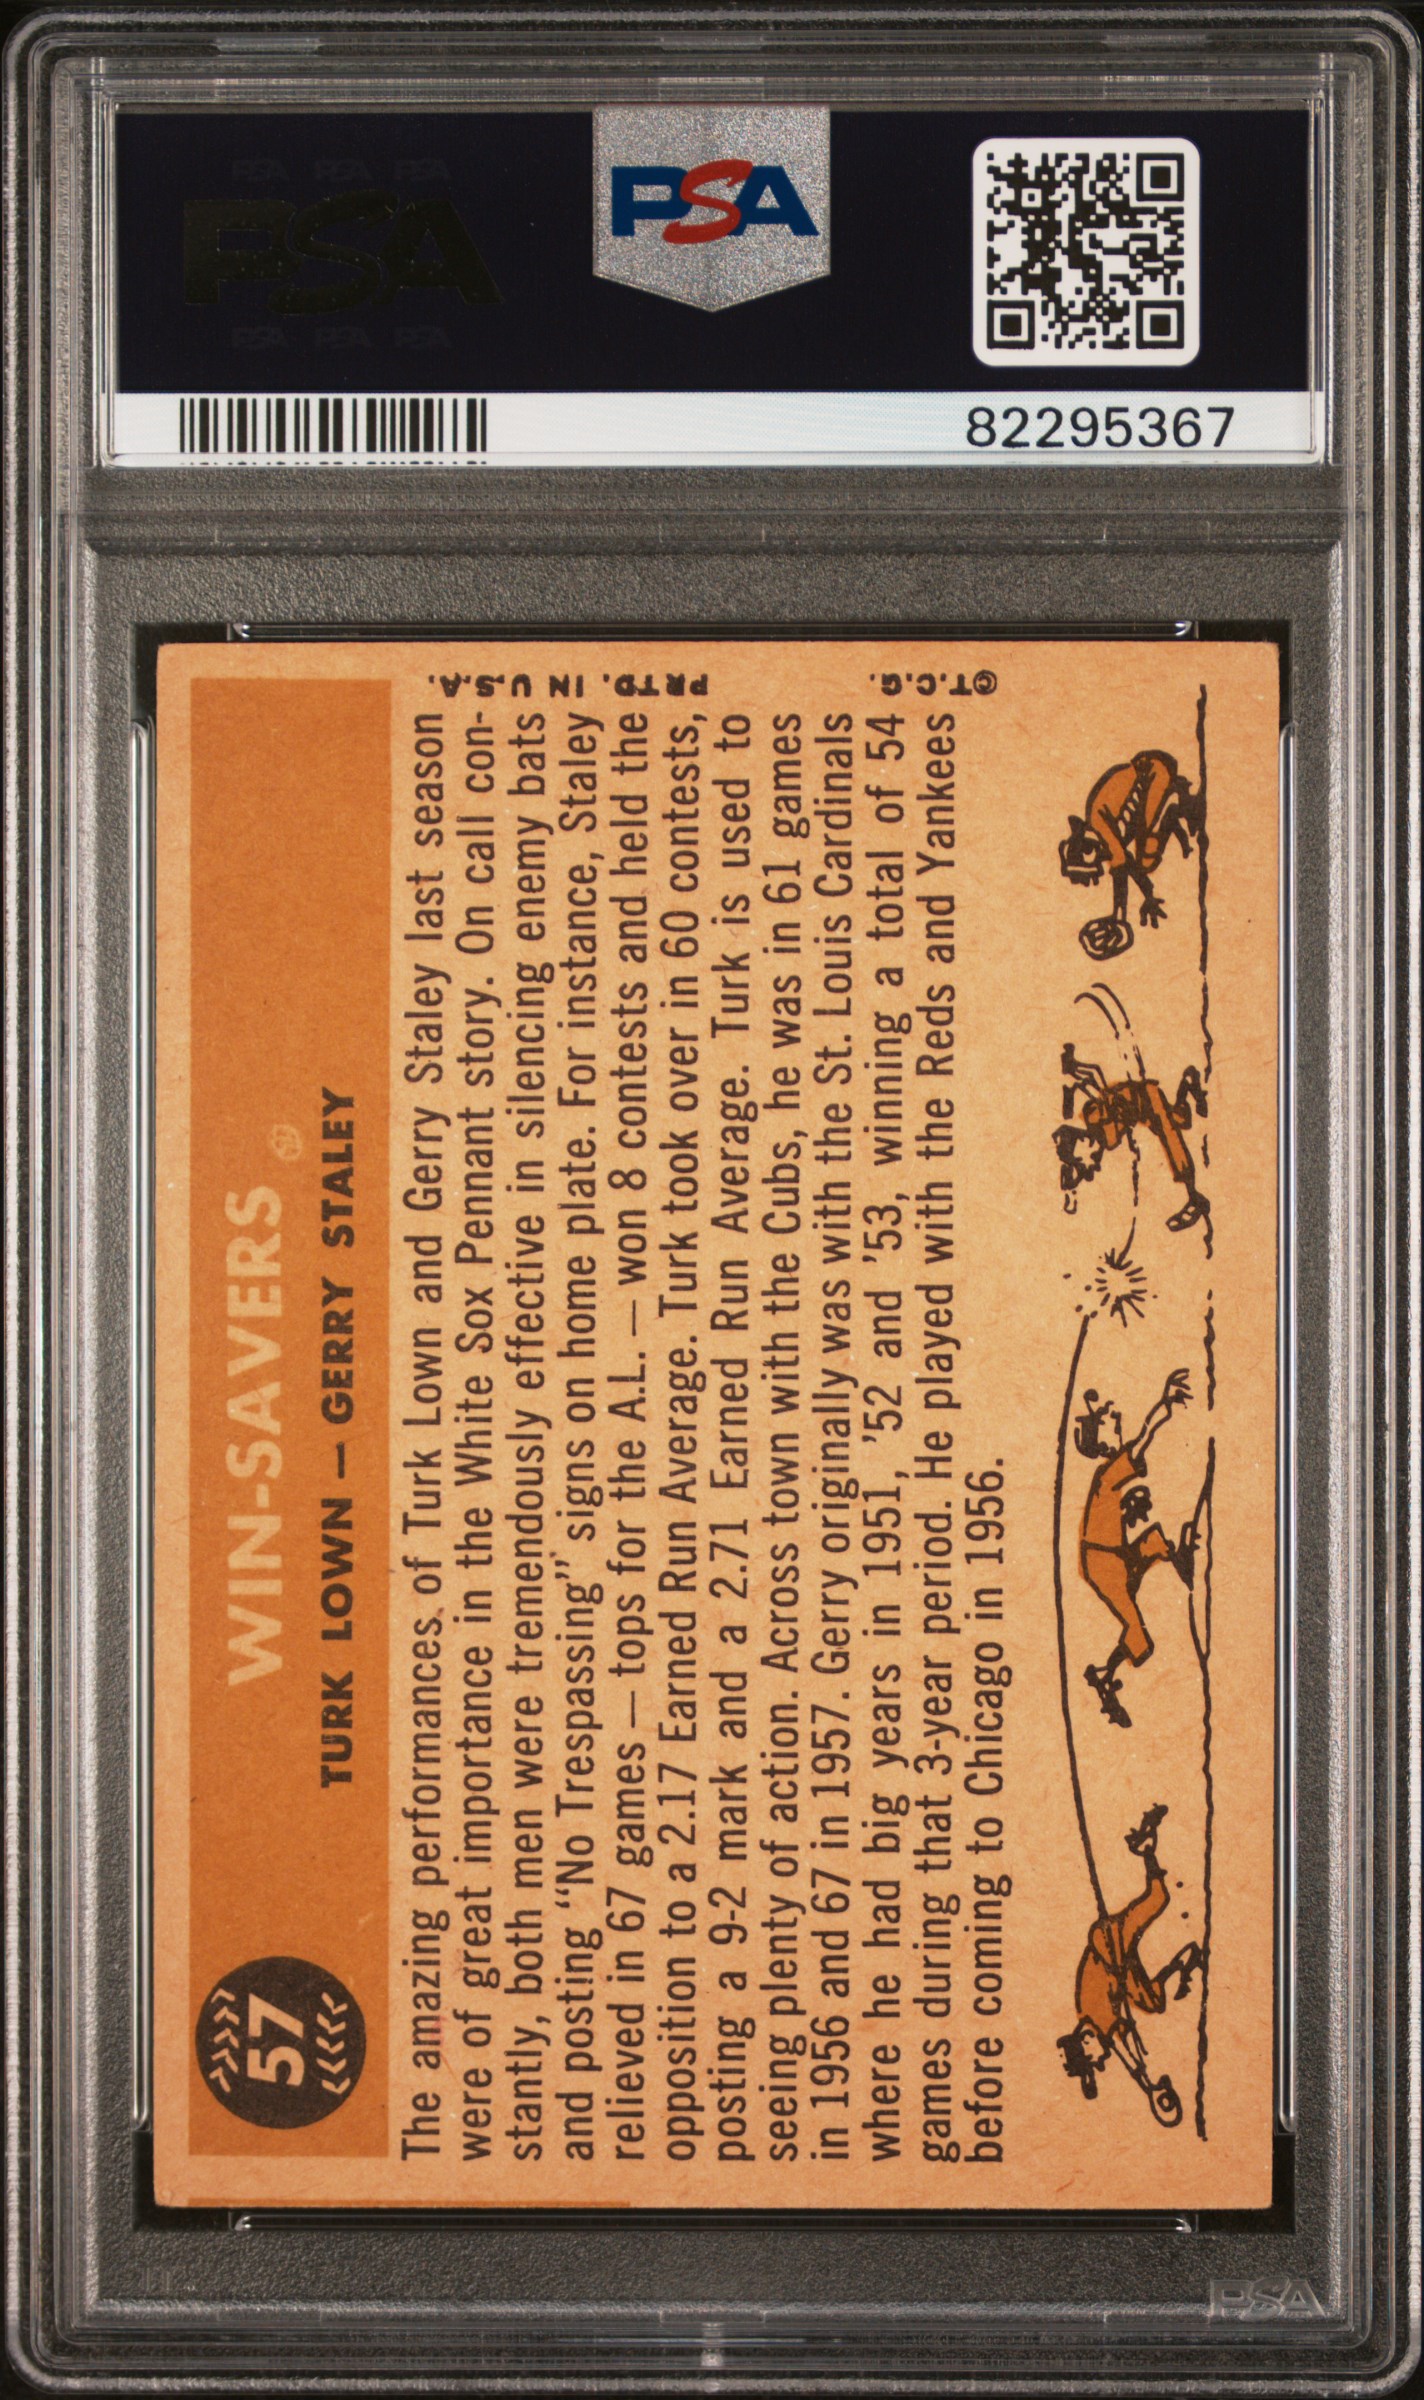 PSA PSA PSA
PSA
PSA PSA PSA
PSA
82295367
57
WIN-SAVERS
TURK LOWN — GERRY STALEY
The amazing performances of Turk Lown and Gerry Staley last season
were of great importance in the White Sox Pennant story. On call con-
stantly, both men were tremendously effective in silencing enemy bats
and posting “No Trespassing” signs on home plate. For instance, Staley
relieved in 67 games — tops for the A.L. — won 8 contests and held the
opposition to a 2.17 Earned Run Average. Turk took over in 60 contests,
posting a 9-2 mark and a 2.71 Earned Run Average. Turk is used to
seeing plenty of action. Across town with the Cubs, he was in 61 games
in 1956 and 67 in 1957. Gerry originally was with the St. Louis Cardinals
where he had big years in 1951, ’52 and ’53, winning a total of 54
games during that 3-year period. He played with the Reds and Yankees
before coming to Chicago in 1956.
©T.C.G.
PRTD. IN U.S.A.
PSA